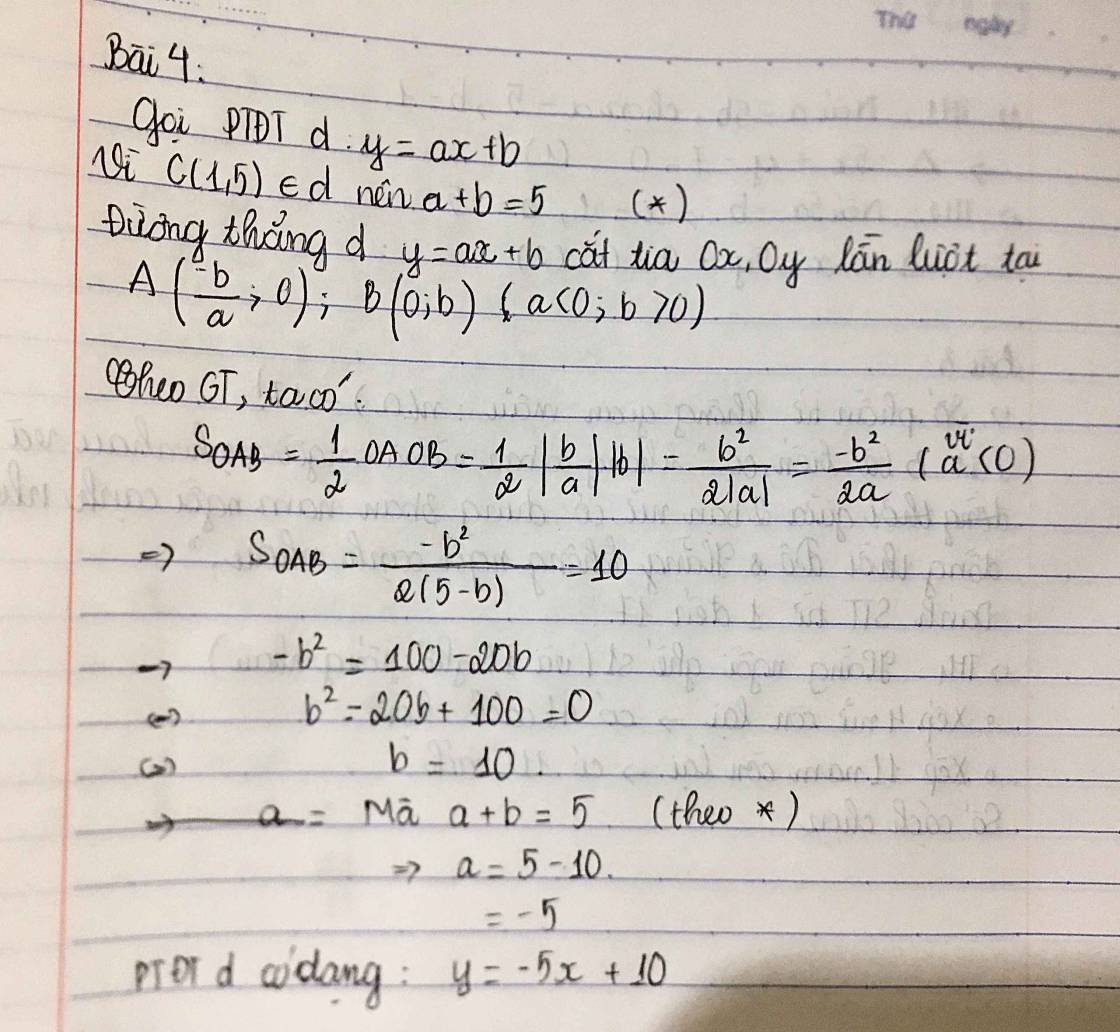 Thứ ngày
Bài 4:
Gọi PTĐT d: y = ax+b
Vì C(1,5) ∈ d nên a+b=5 (*)
Đường thẳng d y=ax+b cắt tia Ox, Oy lần lượt tại
A(-b/a; 0); B(0;b) (a<0; b>0)
Theo GT, ta có:
S_OAB = 1/2 OA OB = 1/2 |b/a| |b| = b²/2|a| = -b²/2a (vì a<0)
=> S_OAB = -b²/2(5-b) = 10
-> -b² = 100-20b
<=> b² - 20b + 100 = 0
<=> b = 10.
=> a = Mà a+b = 5 (theo *)
=> a = 5-10.
= -5
PTĐT d có dạng: y = -5x + 10